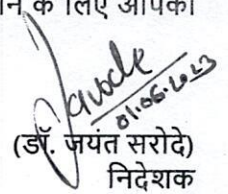 के लिए आपका
01.06.2023
(डॉ. जयंत सरोदे)
निदेशक